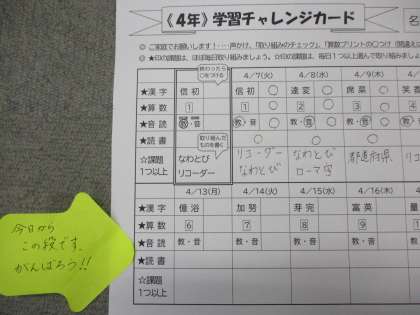 《4年》学習チャレンジカード
名
◎ ご家庭でお願いします!……声かけ、「取り組みのチェック」、「算数プリントの○つけ
★印の課題は、ほぼ毎日取り組みましょう。☆印の課題は、毎日1つ以上選んで取り組み
終わったら○をつける
4/7(火) 4/8(水) 4/9(木)
★漢字 信初 信初 ○ 達変 ○ 席菜 ○ 笑
★算数 1 1 ○ 2 ○ 3 ○ 4
★音読 教・音 教・音 ○ 教・音 ○ 教・音 ○ 教
★読書 取り組んだものを書く ○ ○ ○
☆課題 なわとび リコーダー なわとび 都道府県 リコ
1つ以上 リコーダー なわとび ローマ字
4/13(月) 4/14(火) 4/15(水) 4/16(木)
★漢字 億浴 加努 芽完 富英 量
★算数 6 7 8 9 1
★音読 教・音 教・音 教・音 教・音 教
★読書
☆課題
1つ以上
今日から
この段です。
がんばろう!!